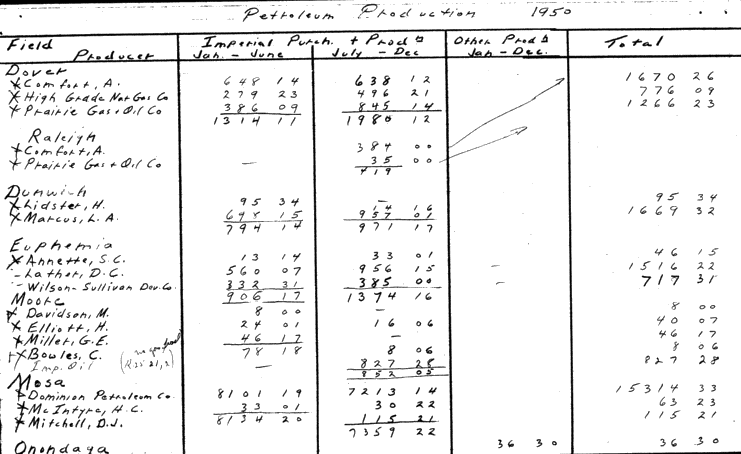 Petroleum Production 1950
Field Producer Imperial Purch. + Prod Jan. - June July - Dec Other Prod Δ Jan - Dec. Total
Dover
x Comfort, A. 648 14 638 12 1670 26
x High Grade Nat Gas Co 279 23 496 21 776 09
x Prairie Gas + Oil Co 386 09 845 14 1266 23
1314 11 1980 12
Raleigh
x Comfort, A. 384 00
x Prairie Gas + Oil Co — 35 00
419
Dunwich
x Lidster, H. 95 34 — 95 34
14 16
x Marcus, L. A. 698 15 957 01 1669 32
794 14 971 17
Euphemia
x Annette, S.C. 13 14 33 01 46 15
- Lather, D.C. 560 07 956 15 — 1516 22
- Wilson-Sullivan Dev. Co. 332 31 385 00 — 717 31
906 17 1374 16
Moore
x Davidson, M. 8 00 — 8 00
x Elliott, H. 24 01 16 06 40 07
x Miller, G.E. 46 17 — 46 17
78 18
x Bowles, C. 8 06 8 06
Imp. Oil — 827 28 827 28
852 05
Mosa
x Dominion Petroleum Co. 8101 19 7213 14 15314 33
x McIntyre, H.C. 33 01 30 22 63 23
x Mitchell, D.J. 115 21 115 21
8134 20 7359 22
Onondaga 36 30 36 30